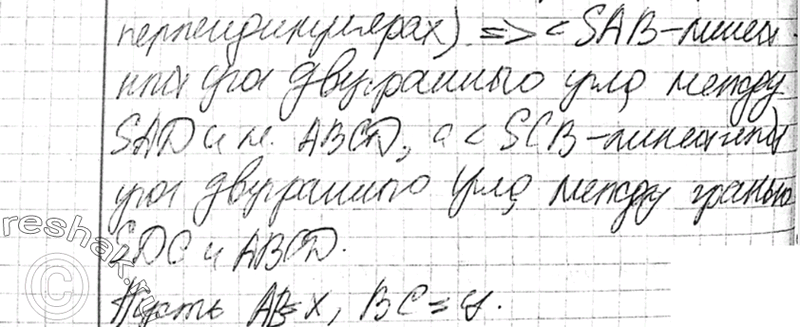 перпендикулярах) => <SAB - линей-
ный угол двугранного угла между
SAD и пл. ABCD, а <SCB - линейный
угол двугранного угла между гранью
SDC и ABCD.
Пусть AB=x, BC=y.
reshak.ru
©